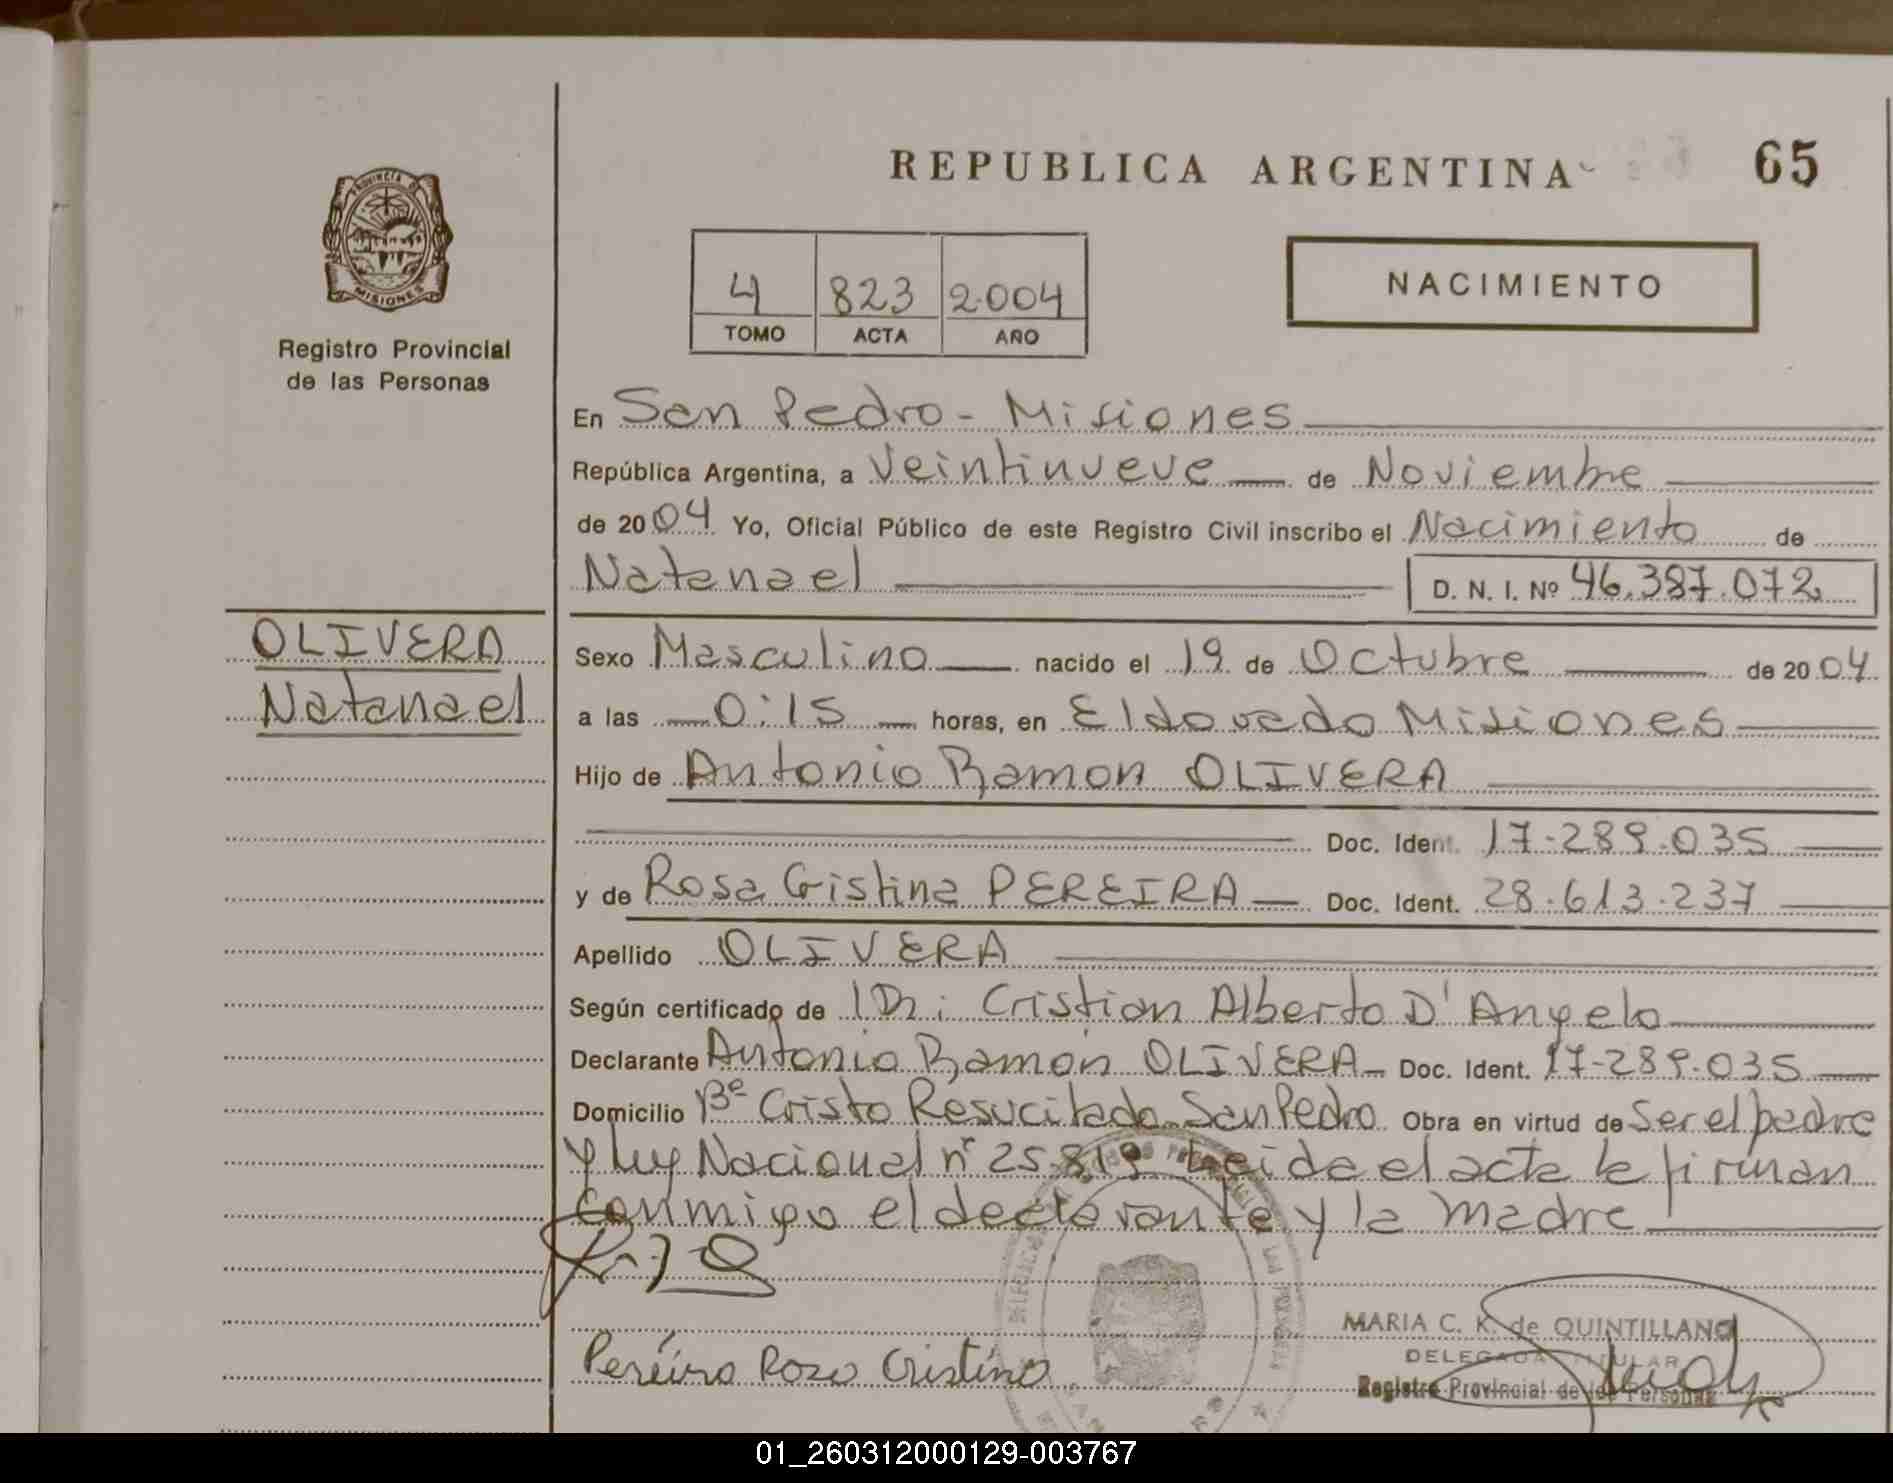 REPUBLICA ARGENTINA
65
PROVINCIA DE
MISIONES
Registro Provincial
de las Personas
4 823 2.004
TOMO ACTA AÑO
NACIMIENTO
En San Pedro - Misiones
República Argentina, a Veintinueve de Noviembre
de 2004 Yo, Oficial Público de este Registro Civil inscribo el Nacimiento de
Natanael D. N. I. Nº 46.387.072
OLIVERA
Natanael
Sexo Masculino nacido el 19 de Octubre de 2004
a las 0:15 horas, en Eldorado Misiones
Hijo de Antonio Ramon OLIVERA
Doc. Ident. 17-289.035
y de Rosa Cristina PEREIRA Doc. Ident. 28.613.237
Apellido OLIVERA
Según certificado de Dr: Cristian Alberto D'Angelo
Declarante Antonio Ramon OLIVERA Doc. Ident. 17-289.035
Domicilio Bº Cristo Resucitado-San Pedro Obra en virtud de Ser el padre
y ley Nacional nº 25.819 Leida el acta la firman
conmigo el declarante y la madre
Pereira Rosa Cristina
MARIA C. K. de QUINTILLAND
DELEGADA TITULAR
Registro Provincial de las Personas
01_260312000129-003767